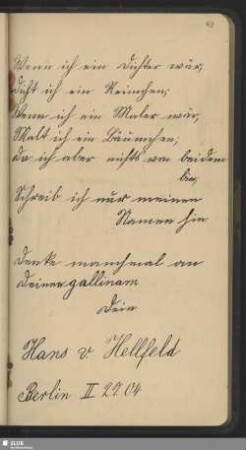 Wenn ich ein Dichter wär,
Dicht ich ein Reimchen;
Wenn ich ein Maler wär,
Malt ich ein Bäumchen;
Da ich aber nichts von beidem
bin,
Schreib ich nur meinen
Namen hin
Denke manchmal an
Deinen gallinam
Dein
Hans v. Hellfeld
Berlin II 29.04
SLUB